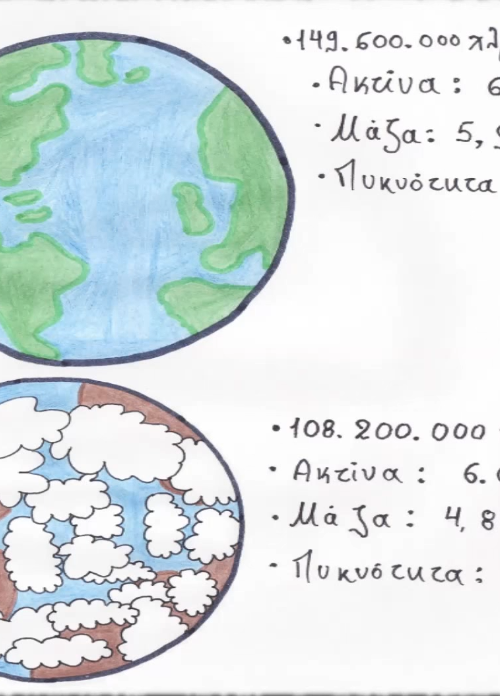 •149.600.000 χλμ
• Ακτίνα: 6
• Μάζα: 5,9
• Πυκνότητα
•108.200.000
• Ακτίνα: 6.0
• Μάζα: 4,8
• Πυκνότητα: